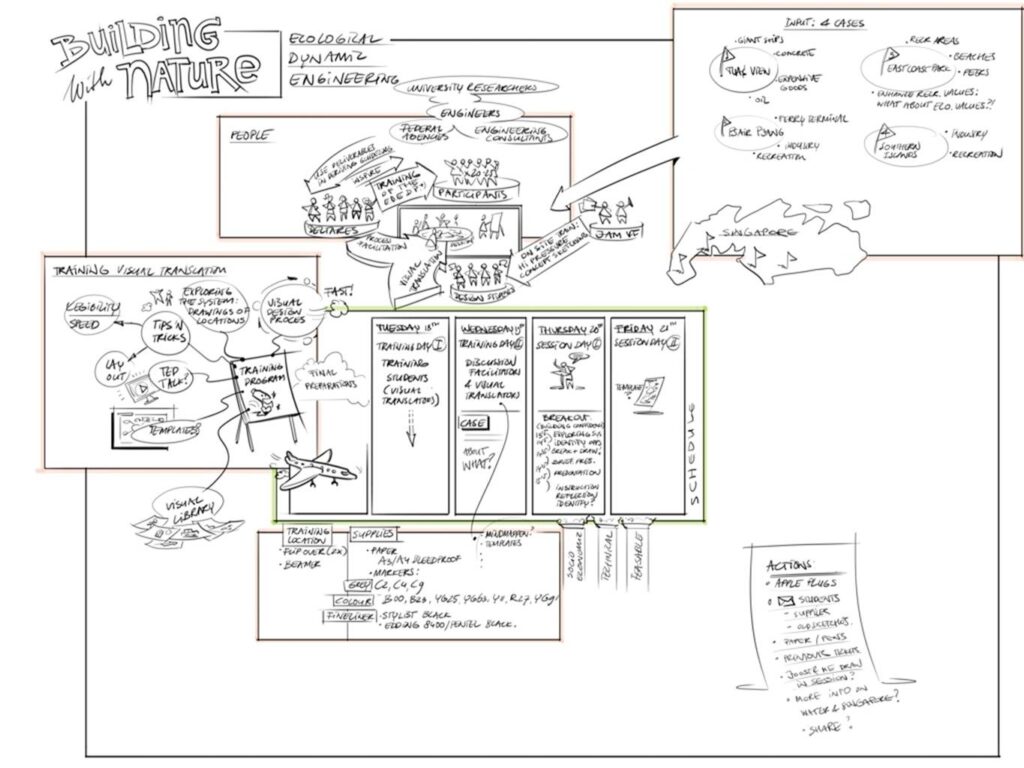 BUILDING
with NATURE
ECOLOGICAL
DYNAMIC
ENGINEERING
UNIVERSITY RESEARCHERS
ENGINEERS
FEDERAL
AGENCIES
ENGINEERING
CONSULTANTS
PEOPLE
USE DELIVERABLES
INSPIRE
TRAINING
OF THE
×20-25
PARTICIPANTS
DELTARES
PROCESS
FACILITATION
VISUAL
TRANSLATION
DESIGN STUDIES
ON SITE TRAIN:
HI PRESSURE
CONCEPT SKETCHING
JAM VT
INPUT: 4 CASES
• GIANT SHIPS
TUAS VIEW
• CONCRETE
• EXPENSIVE
GOODS
• OIL
2
PASIR PJANG
• FERRY TERMINAL
• INDUSTRY
• RECREATION
• RECR AREAS
3
EAST COAST PARK
• BEACHES
• PETERS
• ENHANCE RECR. VALUES:
WHAT ABOUT ECO. VALUES?!
4
SOUTHERN
ISLANDS
• INDUSTRY
• RECREATION
SINGAPORE
TRAINING VISUAL TRANSLATION
LEGIBILITY
SPEED
EXPLORING
THE SYSTEM:
DRAWINGS OF
LOCATIONS
VISUAL
DESIGN
PROCES
FAST!
TIPS 'N
TRICKS
LAY
OUT
TED
TALK?
TEMPLATES
TRAINING
PROGRAM
VISUAL
LIBRARY
FINAL
PREPARATIONS
TUESDAY 18TH
TRAINING DAY I
TRAINING
STUDENTS
(VISUAL
TRANSLATORS)
WEDNESDAY 19TH
TRAINING DAY II
DISCUSSION
FACILITATION
& VISUAL
TRANSLATORS
CASE
ABOUT
WHAT?
THURSDAY 20TH
SESSION DAY I
BREAKOUT
(BUILDING CONFIDENCE)
EXPLORING SYS
BREAK + DRAW!
BRIEF PRES.
PRESENTATION
INSTRUCTION
REFLECTION
IDENTIFY?
FRIDAY 21TH
SESSION DAY II
TEMPLATE
SCHEDULE
TRAINING
LOCATION
• FLIP OVER (2x)
• BEAMER
SUPPLIES
• PAPER
A3/A4 BLEEDPROOF
• MARKERS:
GREY C2, C4, C9
COLOUR B00, B23, YG25, YG63, Y11, R27, YG91
FINELINER • STYLIST BLACK
• EDDING 8400/PENTEL BLACK.
• MINDMAPPEN?
TEMPLATES
SOCIO
ECONOMIC
TECHNICAL
FEASABLE
ACTIONS
• APPLE PLUGS
• STUDENTS
- SUPPLIES
- OLD SKETCHES.
• PAPER / PENS
• PREVIOUS TICKETS
• JOOST ME DRAW
IN SESSION?
• MORE INFO ON
WATER & SINGAPORE?
• SHARE?